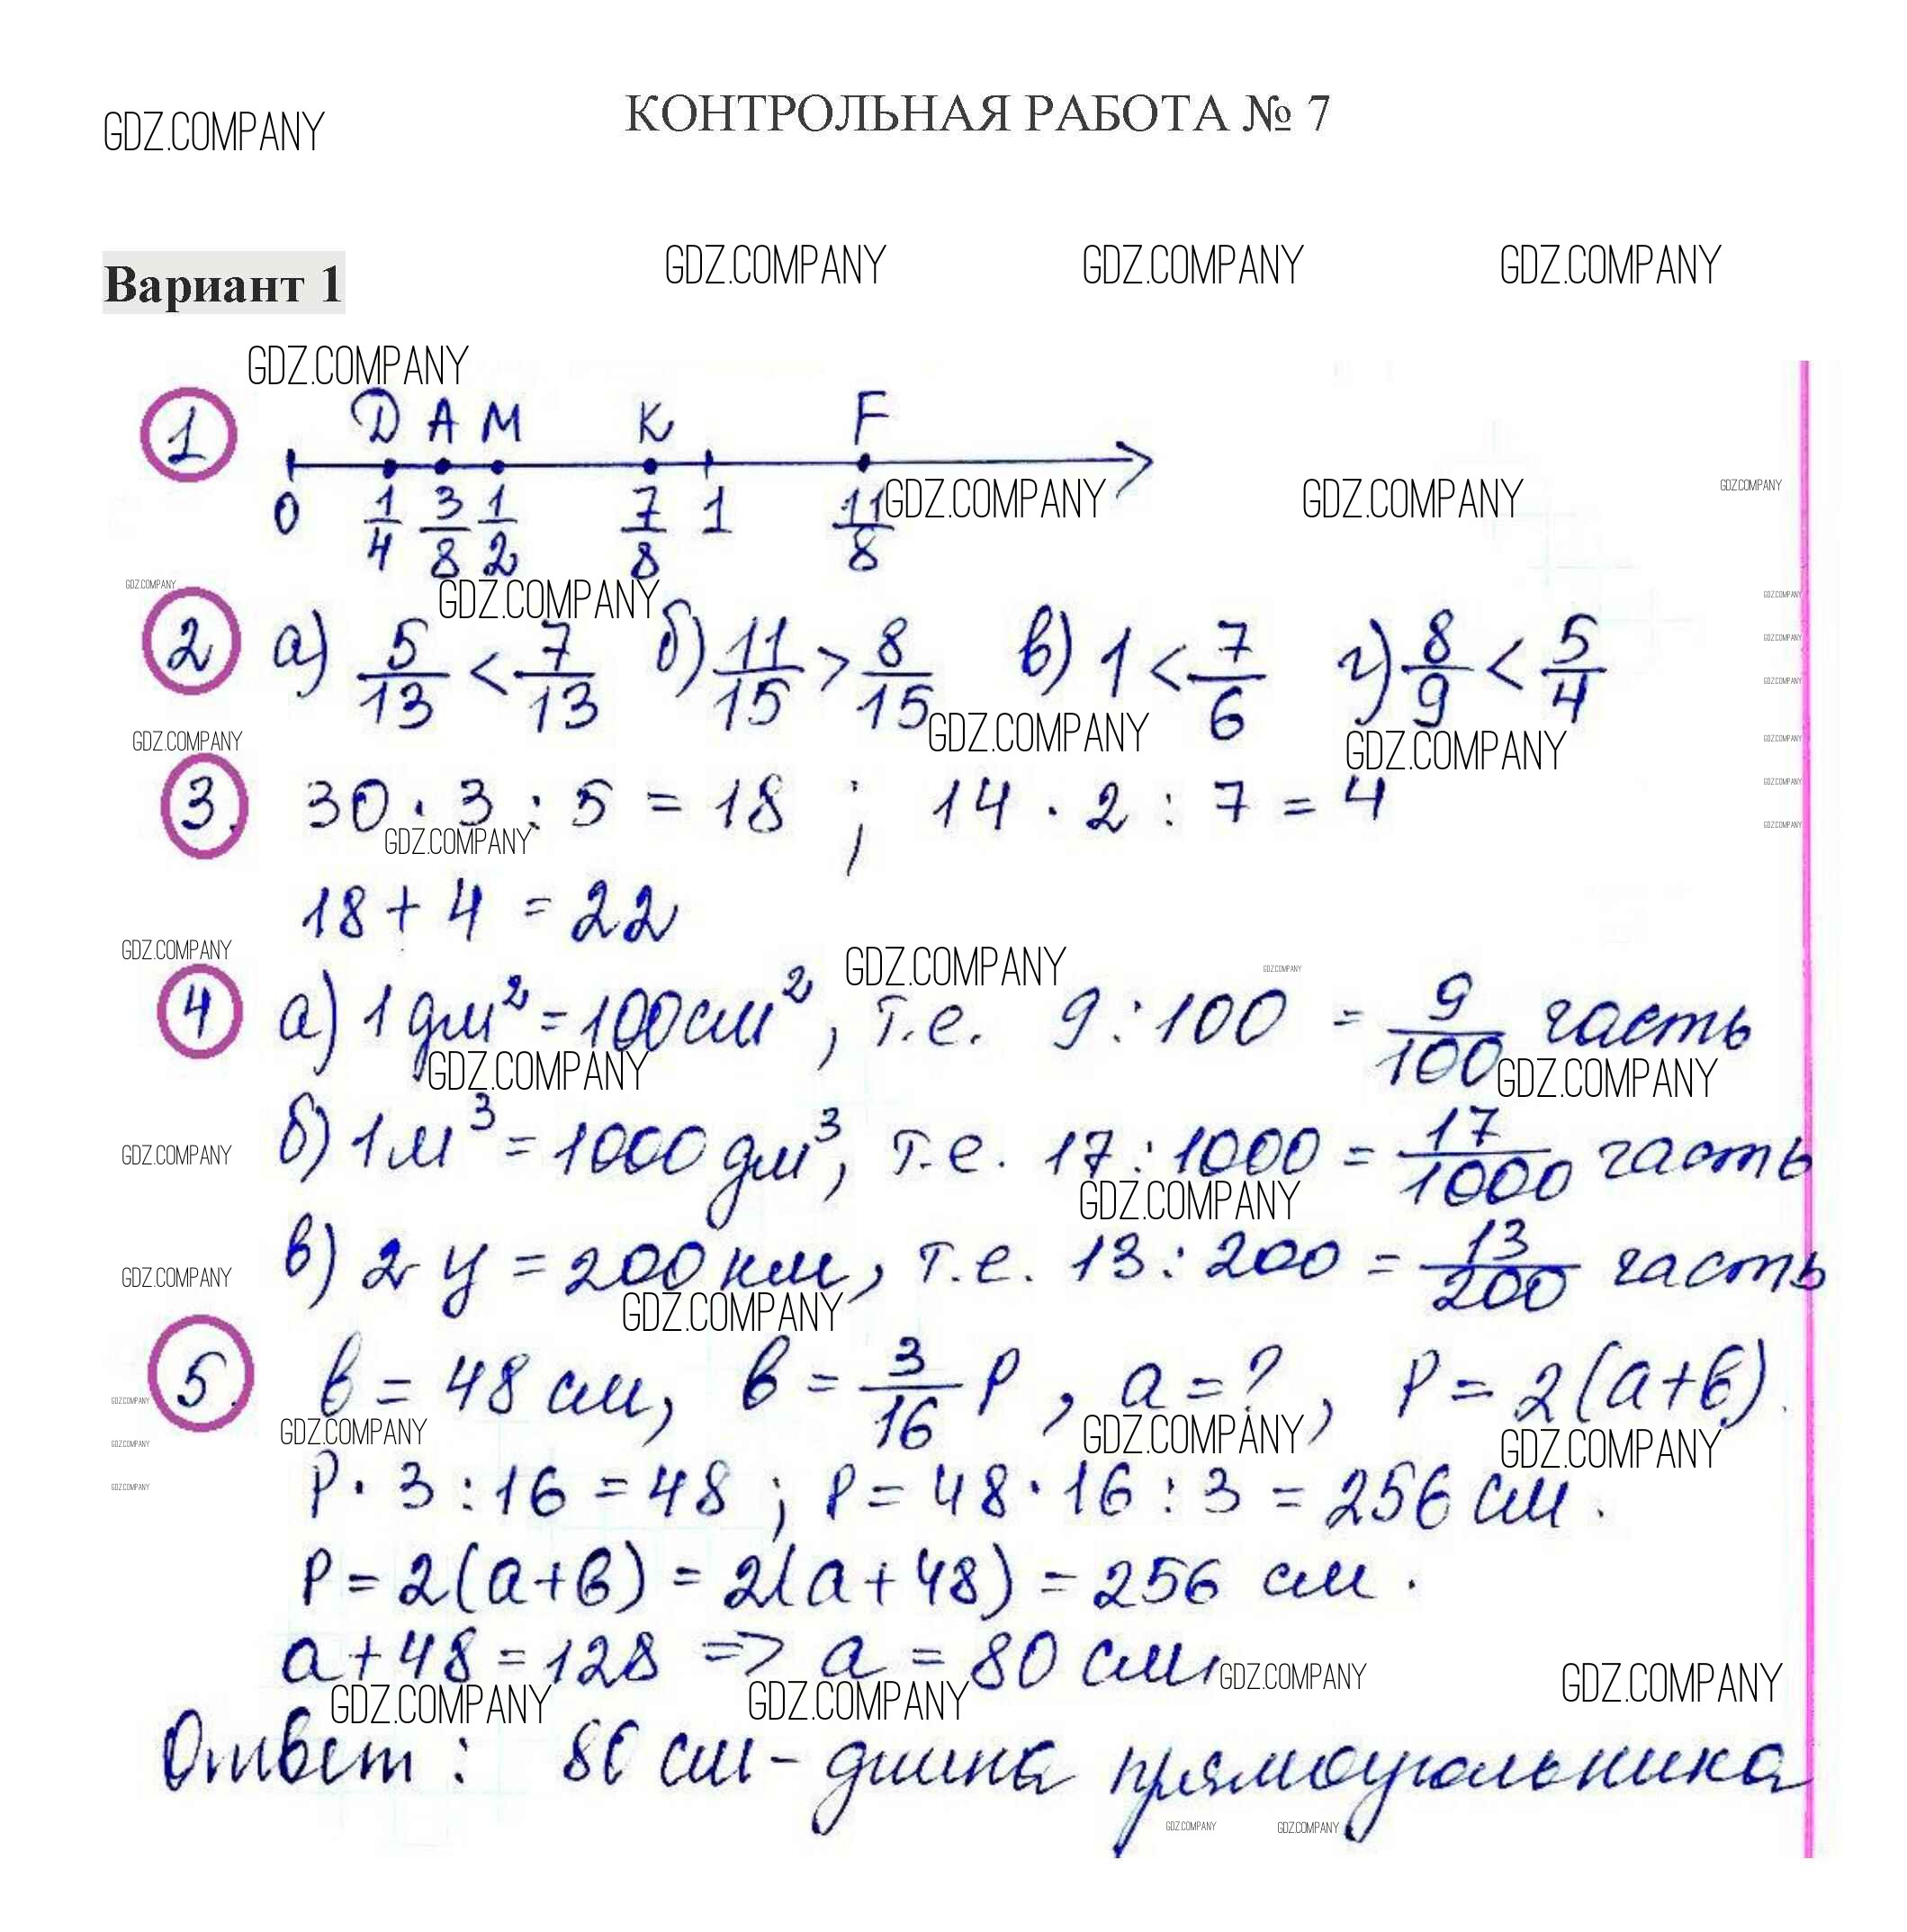 GDZ.COMPANY
КОНТРОЛЬНАЯ РАБОТА № 7
GDZ.COMPANY GDZ.COMPANY GDZ.COMPANY
Вариант 1
GDZ.COMPANY
1 D A M K F
0 1/4 3/8 1/2 7/8 1 11/8
GDZ.COMPANY GDZ.COMPANY GDZ.COMPANY
GDZ.COMPANY GDZ.COMPANY GDZ.COMPANY
2 а) 5/13 < 7/13 б) 11/15 > 8/15 в) 1 < 7/6 г) 8/9 < 5/4
GDZ.COMPANY
GDZ.COMPANY
GDZ.COMPANY GDZ.COMPANY GDZ.COMPANY GDZ.COMPANY
GDZ.COMPANY
3. 30 · 3 : 5 = 18 ; 14 · 2 : 7 = 4
GDZ.COMPANY GDZ.COMPANY
18 + 4 = 22
GDZ.COMPANY GDZ.COMPANY GDZ.COMPANY
4 а) 1 дм² = 100 см², т.е. 9 : 100 = 9/100 часть
GDZ.COMPANY GDZ.COMPANY
б) 1 м³ = 1000 дм³, т.е. 17 : 1000 = 17/1000 часть
GDZ.COMPANY GDZ.COMPANY
в) 2 ч = 200 км, т.е. 13 : 200 = 13/200 часть
GDZ.COMPANY GDZ.COMPANY
5. в = 48 см, в = 3/16 P, а = ?, P = 2(а+в).
GDZ.COMPANY GDZ.COMPANY GDZ.COMPANY GDZ.COMPANY
GDZ.COMPANY
P · 3 : 16 = 48 ; P = 48 · 16 : 3 = 256 см.
GDZ.COMPANY
P = 2(а+в) = 2(а+48) = 256 см.
а + 48 = 128 => а = 80 см,
GDZ.COMPANY GDZ.COMPANY GDZ.COMPANY GDZ.COMPANY
Ответ: 80 см - длина прямоугольника
GDZ.COMPANY GDZ.COMPANY